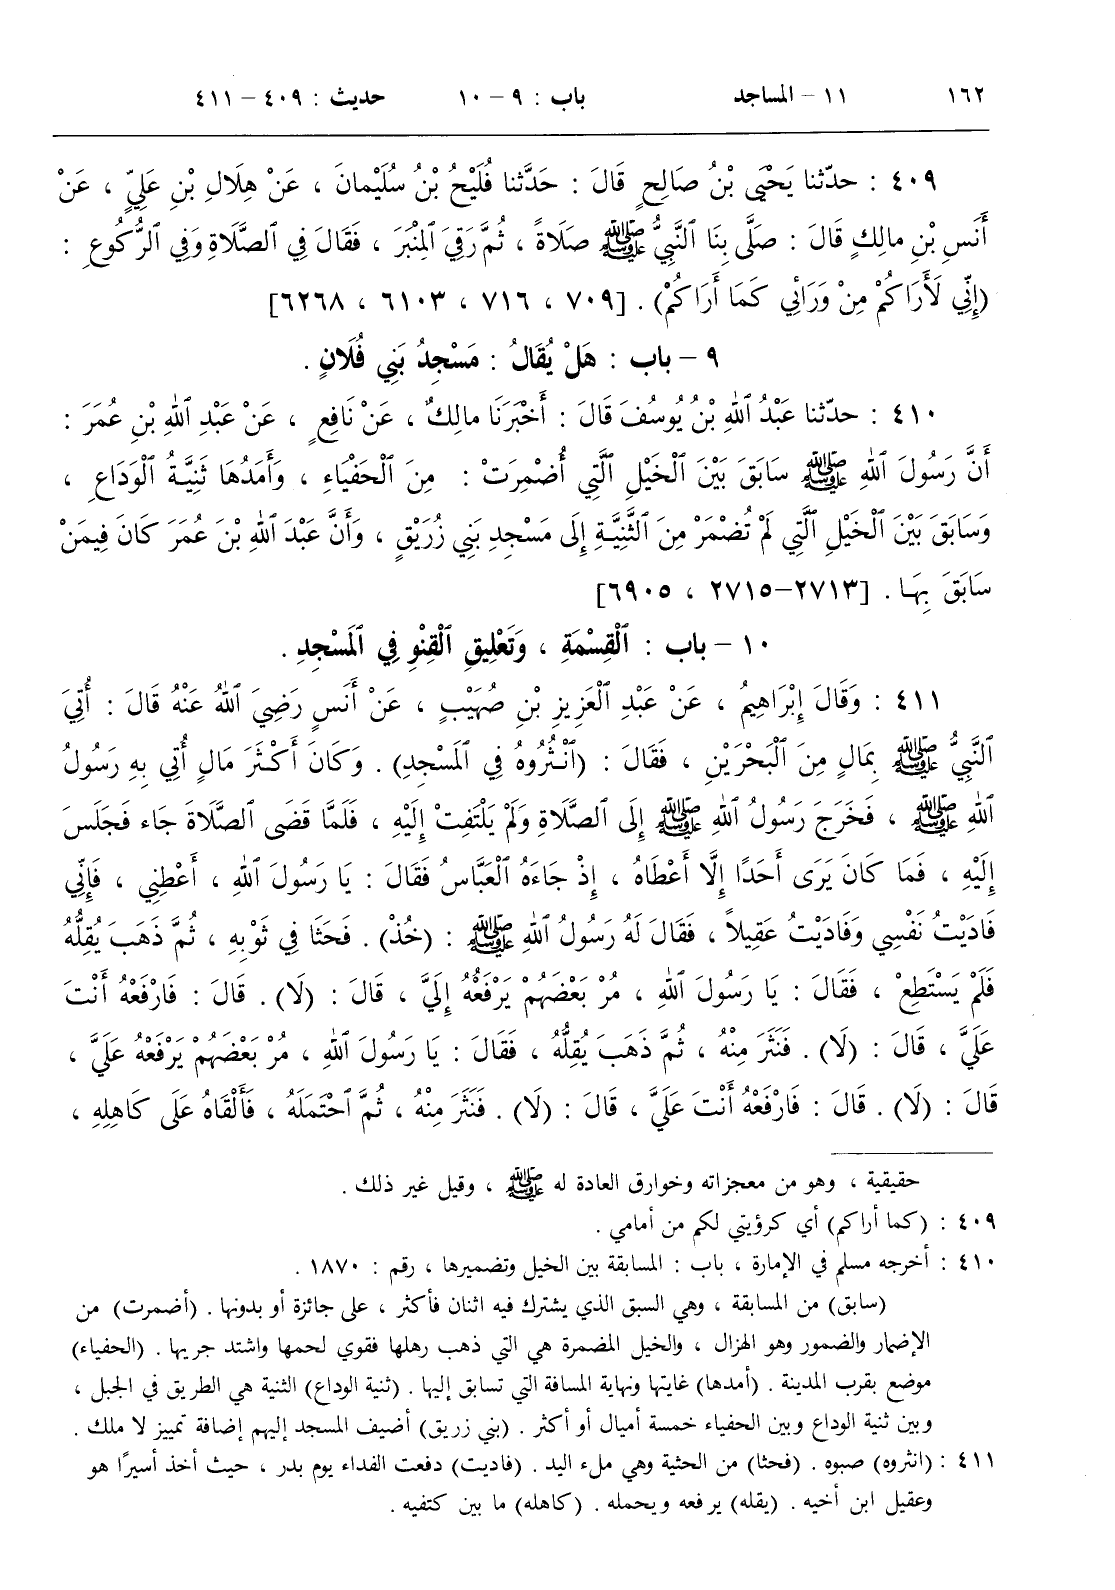 ١٦٢ ١١ – المساجد باب : ٩ – ١٠ حديث : ٤٠٩ – ٤١١
٤٠٩ : حدّثنا يَحْيَى بْنُ صَالِحٍ قَالَ : حَدَّثنا فُلَيْحُ بْنُ سُلَيْمانَ ، عَنْ هِلَالِ بْنِ عَلِيٍّ ، عَنْ
أَنَسِ بْنِ مالِكٍ قَالَ : صَلَّى بِنَا ٱلنَّبِيُّ ﷺ صَلَاةً ، ثُمَّ رَقِيَ ٱلْمِنْبَرَ ، فَقَالَ فِي ٱلصَّلَاةِ وَفِي ٱلرُّكُوعِ :
(إِنِّي لَأَرَاكُمْ مِنْ وَرَائِي كَمَا أَرَاكُمْ) . [٧٠٩ ، ٧١٦ ، ٦١٠٣ ، ٦٢٦٨]
٩ – باب : هَلْ يُقَالُ : مَسْجِدُ بَنِي فُلَانٍ .
٤١٠ : حدّثنا عَبْدُ ٱللهِ بْنُ يُوسُفَ قَالَ : أَخْبَرَنَا مالِكٌ ، عَنْ نَافِعٍ ، عَنْ عَبْدِ ٱللهِ بْنِ عُمَرَ :
أَنَّ رَسُولَ ٱللهِ ﷺ سَابَقَ بَيْنَ ٱلْخَيْلِ ٱلَّتِي أُضْمِرَتْ : مِنَ ٱلْحَفْيَاءِ ، وَأَمَدُهَا ثَنِيَّةُ ٱلْوَدَاعِ ،
وَسَابَقَ بَيْنَ ٱلْخَيْلِ ٱلَّتِي لَمْ تُضْمَرْ مِنَ ٱلثَّنِيَّةِ إِلَى مَسْجِدِ بَنِي زُرَيْقٍ ، وَأَنَّ عَبْدَ ٱللهِ بْنَ عُمَرَ كَانَ فِيمَنْ
سَابَقَ بِهَا . [٢٧١٣–٢٧١٥ ، ٦٩٠٥]
١٠ – باب : ٱلْقِسْمَةِ ، وَتَعْلِيقِ ٱلْقِنْوِ فِي ٱلْمَسْجِدِ .
٤١١ : وَقَالَ إِبْرَاهِيمُ ، عَنْ عَبْدِ ٱلْعَزِيزِ بْنِ صُهَيْبٍ ، عَنْ أَنَسٍ رَضِيَ ٱللهُ عَنْهُ قَالَ : أُتِيَ
ٱلنَّبِيُّ ﷺ بِمَالٍ مِنَ ٱلْبَحْرَيْنِ ، فَقَالَ : (ٱنْثُرُوهُ فِي ٱلْمَسْجِدِ) . وَكَانَ أَكْثَرَ مَالٍ أُتِيَ بِهِ رَسُولُ
ٱللهِ ﷺ ، فَخَرَجَ رَسُولُ ٱللهِ ﷺ إِلَى ٱلصَّلَاةِ وَلَمْ يَلْتَفِتْ إِلَيْهِ ، فَلَمَّا قَضَى ٱلصَّلَاةَ جَاء فَجَلَسَ
إِلَيْهِ ، فَمَا كَانَ يَرَى أَحَدًا إِلَّا أَعْطَاهُ ، إِذْ جَاءَهُ ٱلْعَبَّاسُ فَقَالَ : يَا رَسُولَ ٱللهِ ، أَعْطِنِي ، فَإِنِّي
فَادَيْتُ نَفْسِي وَفَادَيْتُ عَقِيلاً ، فَقَالَ لَهُ رَسُولُ ٱللهِ ﷺ : (خُذْ) . فَحَثَا فِي ثَوْبِهِ ، ثُمَّ ذَهَبَ يُقِلُّهُ
فَلَمْ يَسْتَطِعْ ، فَقَالَ : يَا رَسُولَ ٱللهِ ، مُرْ بَعْضَهُمْ يَرْفَعُهُ إِلَيَّ ، قَالَ : (لَا) . قَالَ : فَارْفَعْهُ أَنْتَ
عَلَيَّ ، قَالَ : (لَا) . فَنَثَرَ مِنْهُ ، ثُمَّ ذَهَبَ يُقِلُّهُ ، فَقَالَ : يَا رَسُولَ ٱللهِ ، مُرْ بَعْضَهُمْ يَرْفَعْهُ عَلَيَّ ،
قَالَ : (لَا) . قَالَ : فَارْفَعْهُ أَنْتَ عَلَيَّ ، قَالَ : (لَا) . فَنَثَرَ مِنْهُ ، ثُمَّ ٱحْتَمَلَهُ ، فَأَلْقَاهُ عَلَى كَاهِلِهِ ،
حقيقية ، وهو من معجزاته وخوارق العادة له ﷺ ، وقيل غير ذلك .
٤٠٩ : (كما أراكم) أي كرؤيتي لكم من أمامي .
٤١٠ : أخرجه مسلم في الإمارة ، باب : المسابقة بين الخيل وتضميرها ، رقم : ١٨٧٠ .
(سابق) من المسابقة ، وهي السبق الذي يشترك فيه اثنان فأكثر ، على جائزة أو بدونها . (أضمرت) من
الإضمار والضمور وهو الهزال ، والخيل المضمرة هي التي ذهب رهلها فقوي لحمها واشتد جريها . (الحفياء)
موضع بقرب المدينة . (أمدها) غايتها ونهاية المسافة التي تسابق إليها . (ثنية الوداع) الثنية هي الطريق في الجبل ،
وبين ثنية الوداع وبين الحفياء خمسة أميال أو أكثر . (بني زريق) أضيف المسجد إليهم إضافة تمييز لا ملك .
٤١١ : (انثروه) صبوه . (فحثا) من الحثية وهي ملء اليد . (فاديت) دفعت الفداء يوم بدر ، حيث أخذ أسيرًا هو
وعقيل ابن أخيه . (يقله) يرفعه ويحمله . (كاهله) ما بين كتفيه .